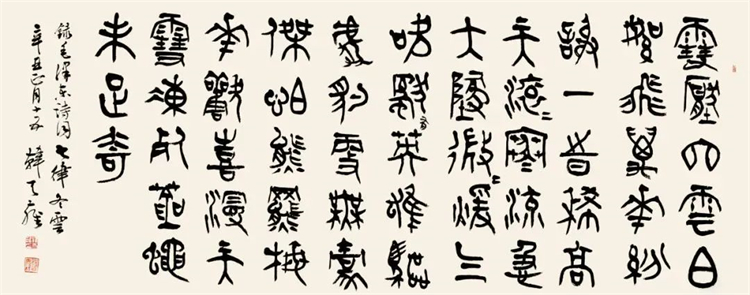 雪壓冬雲白
絮飛萬華紛
謝一時稀高
天滾〻寒流急
大地微〻煖气
吹獨有英雄驅
虎豹更無豪
傑怕熊羆梅
華歡喜漫天
雪凍死蒼蠅
未足奇
錄毛澤東詩詞七律冬雲
辛丑正月十五 韓天雍